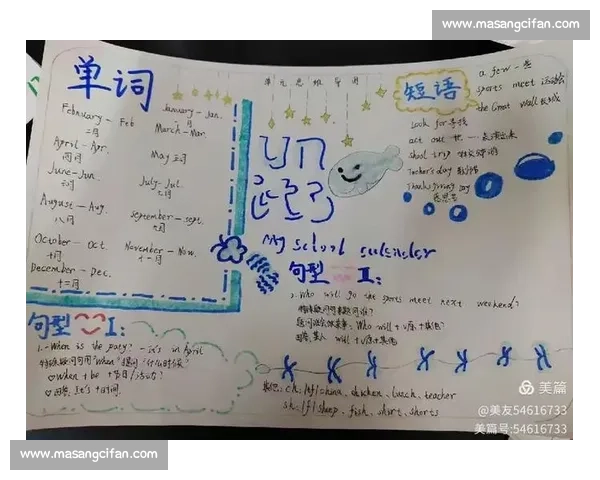 www.masangcifan.com
单元思维导图
单词
January - Jan.
一月
February - Feb
二月
March - Mar.
April - Apr.
四月
May 五月
June - Jun.
六月
July - Jul.
七月
August - Aug.
八月
september - sept.
九月
October - Oct.
十月
November - Nov.
十一月
December - Dec.
十二月
短语
a few 一些
sports meet 运动会
the Great Wall 长城
look for 寻找
act out 把……表演出来
Thanksgiving Day
感恩节
My school calendar
句型 II:
Who will go the sports meet next weekend?
Who will + v原 + 其他?
will + v原 + 其他
句型 I:
1. When is the party? - it's in April
特殊疑问句用"When"提问
When + be + 节日/活动?
回答: It's + 时间.
ch /tʃ/ china, chicken, lunch, teacher
sh /ʃ/ sheep, fish, shirt, shorts
美篇
@美友54616733
美篇号:54616733
www.masangcifan.com